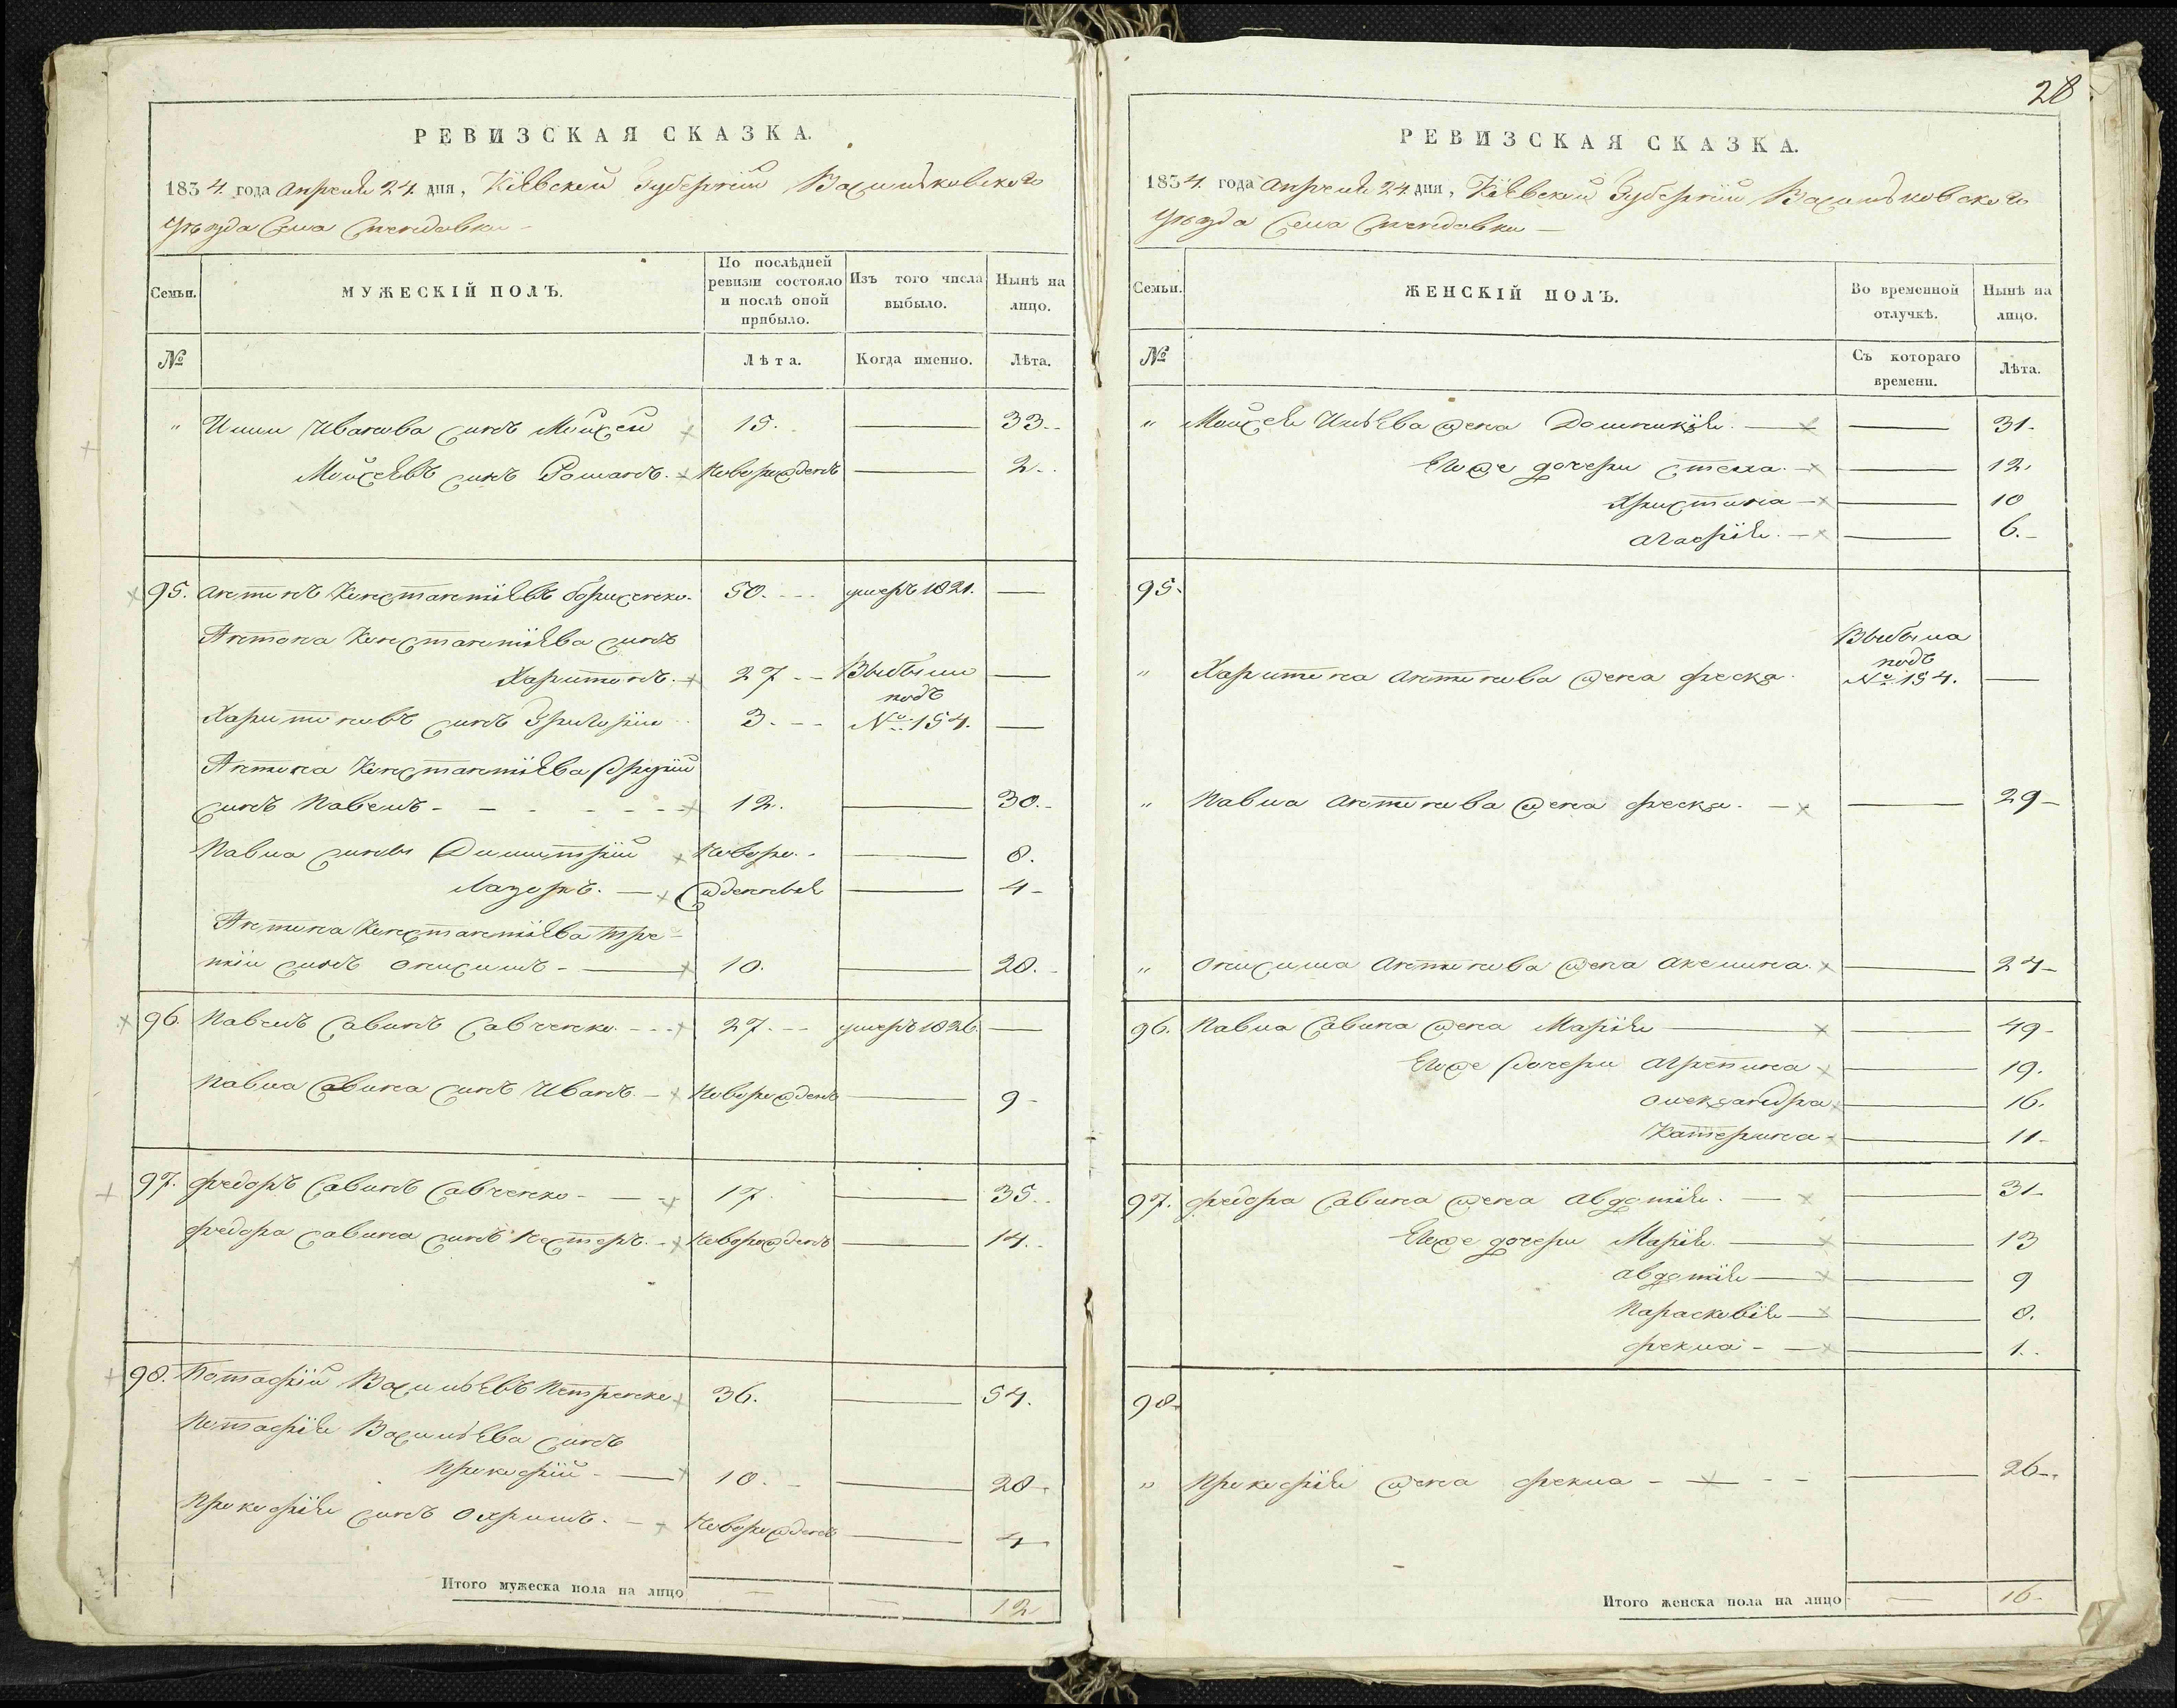 РЕВИЗСКАЯ СКАЗКА.
1834. года Апреля 24. дня, Кіевской Губерніи Васильковского
Уѣзда Села
Семьи.
МУЖЕСКІЙ ПОЛЪ.
По послѣдней ревизіи состояло и послѣ оной прибыло.
Изъ того числа выбыло.
Нынѣ на лицо.
№
Лѣта.
Когда именно.
Лѣта.
" Ильи Иванова сынъ Мойсей 15. — 33.
Мойсеевъ сынъ Романъ. новорожденъ — 2.
95. Антонъ Константіевъ Борисенко. 50. умеръ 1821. —
Антона Константіева сынъ
Харитонъ. 27 Выбыли —
подъ
Харитоновъ сынъ Григорій 3. №154. —
Антона Константіева другій
сынъ Павелъ 12. — 30.
Павла сыновья Димитрій Новоро 8.
Лазоръ. жденные 4
Антона Константіева тре-
тій сынъ Онисимъ 10. — 28.
96. Павелъ Савинъ Савченко. 27. умеръ 1826. —
Павла Савина сынъ Иванъ. Новорожденъ — 9
97. Федоръ Савинъ Савченко 17 — 35.
Федора Савина сынъ Нестеръ. Новорожденъ — 14.
98. Потафій Васильевъ Петренко 36. — 54.
Потафія Васильева сынъ
Прокофій 10. — 28.
Прокофія сынъ Охримъ. Новорожденъ — 4
Итого мужеска пола на лицо — — 12
28
РЕВИЗСКАЯ СКАЗКА.
1834. года Апреля 24. дня, Кіевской Губерніи Васильковского
Уѣзда Села
Семьи.
ЖЕНСКІЙ ПОЛЪ.
Во временной отлучкѣ.
Нынѣ на лицо.
№
Съ котораго времени.
Лѣта.
" Мойсея Ильева жена Домникія. — 31.
Егоже дочери Стеха. — 12.
Христина — 10
Агафія. — 6.
95.
Выбыла
подъ
" Харитона Антонова жена Феска. №154. —
" Павла Антонова жена Феска. — 29
" Онисима Антонова жена Акелина. — 24
96. Павла Савина жена Марія — 49
Егоже дочери Агрепина — 19.
Олександра — 16.
Катерина — 11
97. Федора Савина жена Авдотія. — 31
Егоже дочери Марія. — 13
Авдотія — 9
Параскевія — 8.
Фекла — 1.
98.
" Прокофія жена Фекла — 26
Итого женска пола на лицо — 16